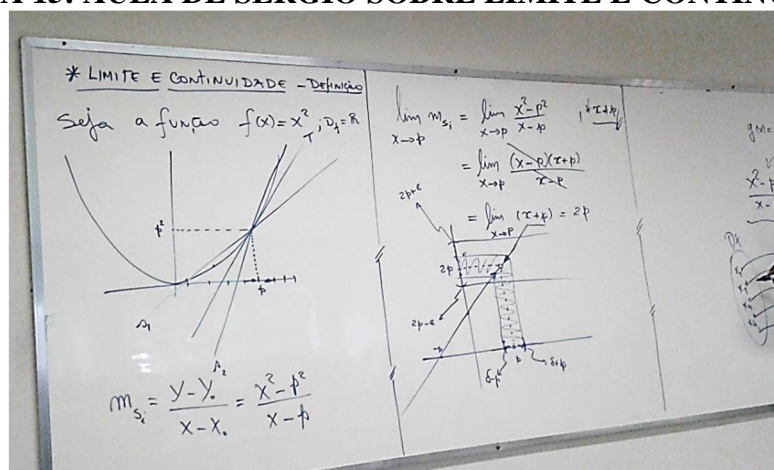 AULA DE SÉRGIO SOBRE LIMITE E
* LIMITE E CONTINUIDADE - DEFINIÇÃO
Seja a função f(x)=x²; D_f=R
T
p²
p
s₁
s₂
m_{s_i} = (y-y₀)/(x-x₀) = (x²-p²)/(x-p)
lim_{x→p} m_{s_i} = lim_{x→p} (x²-p²)/(x-p), x≠p
= lim_{x→p} (x-p)(x+p)/(x-p)
= lim_{x→p} (x+p) = 2p
2p+ε
2p
2p-ε
-p
p
δ-p
δ+p
g(x)=
x²-p
x-